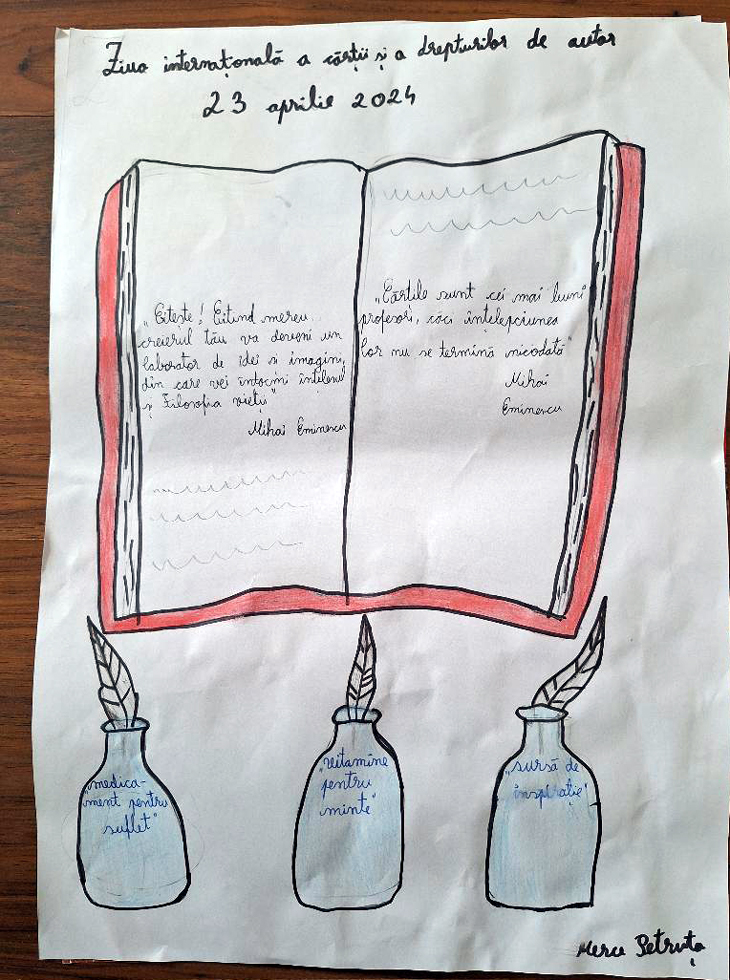 Ziua internațională a cărții și a drepturilor de autor
23 aprilie 2024
„Citește! Citind mereu
creierul tău va deveni un
laborator de idei si imagini,
din care vei întocmi înțelesul
și Filosofia vieții"
Mihai Eminescu
„Cărțile sunt cei mai buni
profesori, căci întelepciunea
lor nu se termină niciodată"
Mihai
Eminescu
„medica-
ment pentru
suflet"
„vitamine
pentru
minte"
„sursă de
inspirație"
Merce Petruța